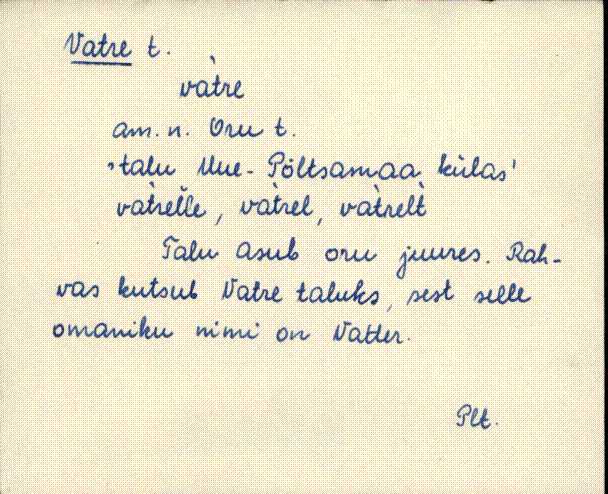 Vatre t.
va̕tre
am. n. Oru t.
'talu Uue-Põltsamaa külas'
va̕trelle, va̕trel, va̕trelt
Talu asub oru juures. Rah-
vas kutsub Vatre taluks, sest selle
omaniku nimi on Vatter.
Plt.